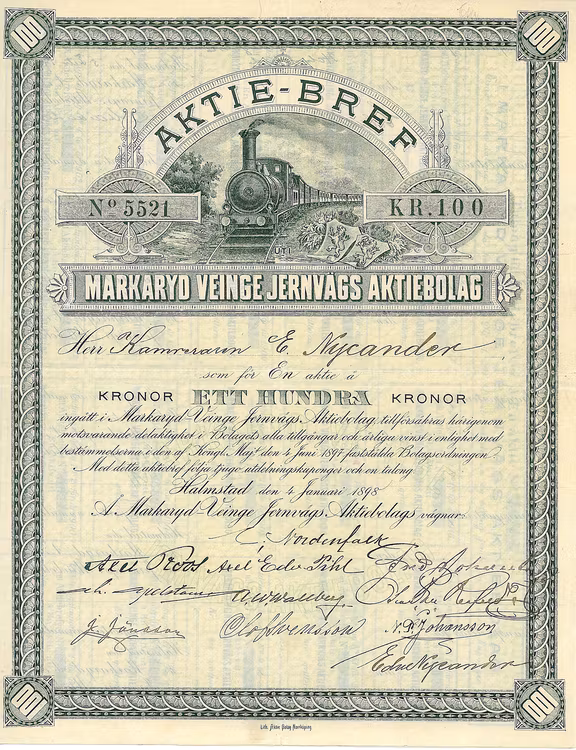 100 100
AKTIE-BREF
Nº 5521 KR. 100
UTI
MARKARYD VEINGE JERNVÄGS AKTIEBOLAG
Herr Kamreraren E. Nycander
som för En aktie à
KRONOR ETT HUNDRA KRONOR
ingått i Markaryd-Veinge Jernvägs Aktiebolag, tillförsäkras härigenom
motsvarande delaktighet i Bolagets alla tillgångar och årliga vinst i enlighet med
bestämmelserna i den af Kongl. Maj:t den 4 Juni 1897 fastställda Bolagsordningen.
Med detta aktiebref följa tjugo utdelningskuponger och en talong.
Halmstad den 4 Januari 1898
Å Markaryd-Veinge Jernvägs Aktiebolags vägnar:
Nordenfalk
Axel Roos Axel Eder Pihl
A. W. Wallberg
J. Jönsson Olof Svensson N. P. Johansson
Edv. Nycander
100 100